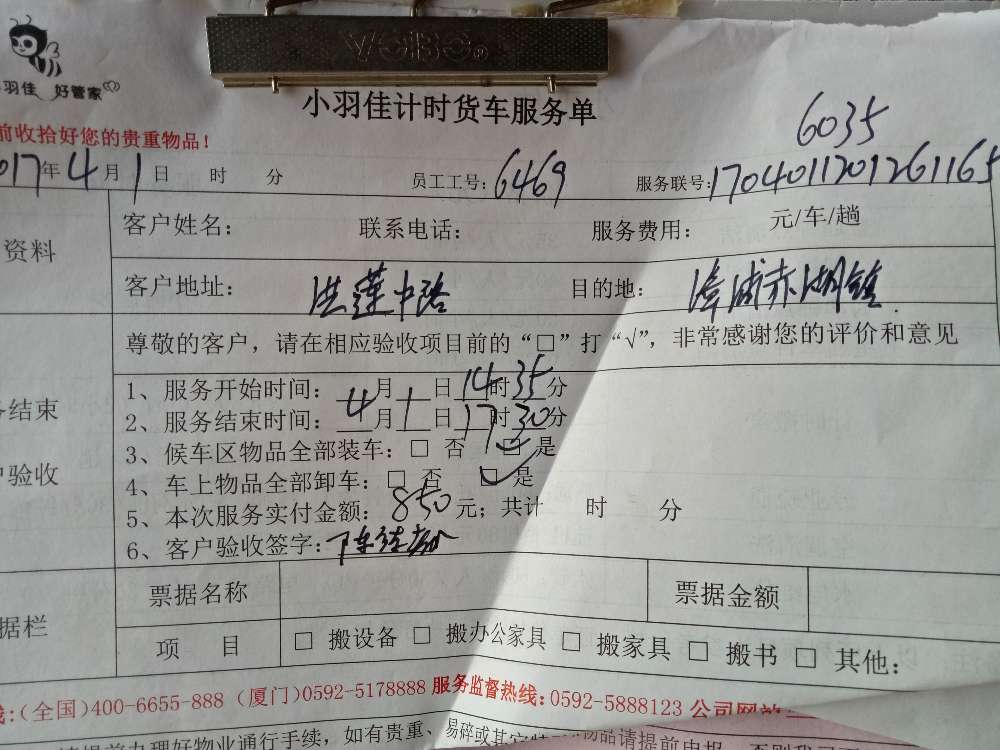 VOBO®
羽佳 好管家
小羽佳计时货车服务单
前收拾好您的贵重物品！
6035
017年4月1日 时 分 员工工号：6469 服务联号：1704011201261165
资料
客户姓名： 联系电话： 服务费用： 元/车/趟
客户地址：洪莲中路 目的地：漳浦赤湖镇
尊敬的客户，请在相应验收项目前的“□”打“√”，非常感谢您的评价和意见
务结束
户验收
1、服务开始时间： 月 日14时35分
2、服务结束时间：4月1日17时30分
3、候车区物品全部装车：□ 否 ☑ 是
4、车上物品全部卸车：□ 否 ☑ 是
5、本次服务实付金额：850元；共计 时 分
6、客户验收签字：陈
据栏
票据名称 票据金额
项 目 □ 搬设备 □ 搬办公家具 □ 搬家具 □ 搬书 □ 其他：
线：（全国）400-6655-888（厦门）0592-5178888 服务监督热线：0592-5888123 公司网站
请提前办理好物业通行手续，如有贵重、易碎或其它特 物品请提前申报，否则我司